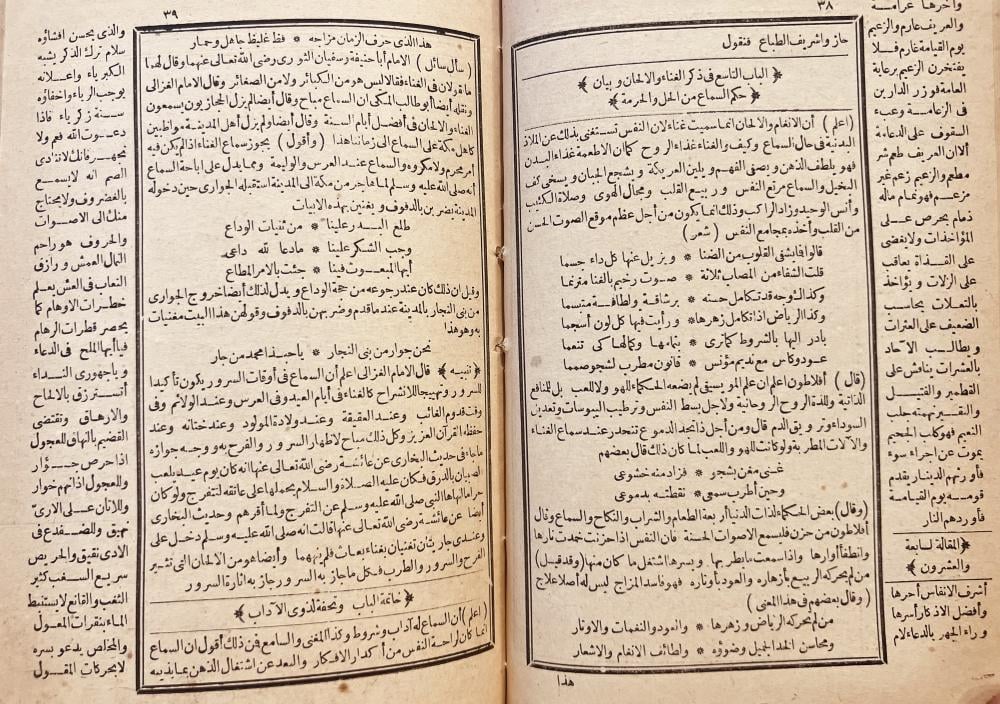 ٣٨
حاز واشريف الطباع فنقول
﴿ الباب التاسع فى ذكر الغناء والالحان و بيان ﴾
﴿ حكم السماع من الحل والحرمة ﴾
(اعلم) أن الأنغام والالحان انما سميت غناء لان النفس تستغنى بذلك عن الملاذ
البدنية فى حال السماع وكيف والغناء غذاء الروح كما ان الاطعمة غذاء البدن
فهو يلطف الذهن و يصفى الفهم و يلين العريكة و يشجع الجبان ويسخى كف
البخيل والسماع مرتع النفس و ربيع القلب ومجال الهوى وصلاة الكئيب
وأنس الوحيد وزاد الراكب وذلك انما يكون من أجل عظم موقع الصوت الحسن
من القلب وأخذه بمجامع النفس (شعر)
قالوا فابشفى القلوب من الضنا * ويزيل عنها كل داء جسما
قلت الشفاء من المصاب ثلاثة * صوت رخيم بالغنا مترنما
وكذا الوجه قد تكامل حسنه * برشاقة ولطافة متسما
وكذا الرياض اذا تكامل زهرها * ورأيت فيها كل لون أسجما
بادر اليها بالشروط كما ترى * بتمامها وكمالها كى تنعما
عود وكاس مع نديم مؤنس * قانون مطرب لشجو صمما
(قال) أفلاطون اعلم ان علم الموسيقى لم يضعه الحكماء للهو واللعب بل للمنافع
الذاتية ولذة الروح الروحانية ولاجل بسط النفس وترطيب اليبوسات وتعديل
السوداء وترويق الدم قال ومن أجل ذا تجد الدموع تنحدر عند سماع الغناء
والآلات المطربة ولو كانت للهو واللعب لما كان ذلك قال بعضهم
غنى مغن بشجو * فزاد منه خشوعى
وحين أطرب سمعى * نقطته بدموعى
(وقال) بعض الحكماء لذات الدنيا أربعة الطعام والشراب والنكاح والسماع وقال
أفلاطون من حزن فليسمع الاصوات الحسنة فان النفس اذا حزنت خمدت نارها
وانطفأ أوارها واذا سمعت ما يطربها ويسرها اشتعل ما كان منها (وقد قيل)
من لم يحركه الربيع بأزهاره والعود بأوتاره فهو فاسد المزاج ليس له أصلا علاج
(وقال بعضهم فى هذا المعنى)
من لم يحركه الرياض و زهرها * والعود والنغمات والاوتار
ومحاسن الخد الجميل وضوؤه * ولطائف الانغام والاشعار
هذا
وآخرها غرامة
والعريف عارم والزعيم
يوم القيامة غارم فلا
يفتخرن الزعيم برعاية
العامة فوزر الدارين
فى الزعامة وعبء
السقوف على الدعامة
ألا ان العريف طعم شر
مطعم والزعيم زعم غير
مزعم فهو تمام ماله
ذمام يحرص على
المؤاخذات ولا يغضى
على القذاة يعاقب
على الزلات و يؤاخذ
بالتعلات يحاسب
الضعيف على العثرات
ويطالب الآحاد
بالعشرات يناقش على
القطمير والفتيل
والنقير نهمته حلب
النعيم فهو كاب الجحيم
يموت عن اجراء سوء
فأورثهم الدينار يقدم
قومه يوم القيامة
فأوردهم النار
﴿ المقالة السابعة
والعشرون ﴾
أشرف الانفاس أحرها
وأفضل الاذكار أسرها
وراء الجهر بالدعاء لام
٣٩
هذا الذى حرف الزمان مزاجه * فظ غليظ جاهل وحمار
(سأل سائل) الامام أبا حنيفة وسفيان الثورى رضى الله تعالى عنهما وقال لهما
ما تقولان فى الغناء فقالا ليس هو من الكبائر ولا من الصغائر وقال الامام الغزالى
ونقله أيضا أبو طالب المكى ان السماع مباح وقال أيضا لم يزل الحجازيون يسمعون
الغناء والالحان فى أفضل أيام السنة وقال أيضا ولم يزل أهل المدينة مواظبين
كاهل مكة على السماع الى زماننا هذا (وأقول) يجوز سماع الغناء اذا لم يكن فيه
أمر محرم ولا مكروه والسماع عند العرس والوليمة ومما يدل على اباحة السماع
أنه صلى الله عليه وسلم لما هاجر من مكة الى المدينة استقبله الجوارى حين دخوله
المدينة تضربن بالدفوف و يغنين بهذه الابيات
طلع البدر علينا * من ثنيات الوداع
وجب الشكر علينا * ما دعا لله داعى
أيها المبعوث فينا * جئت بالامر المطاع
وقيل ان ذلك كان عند رجوعه من حجة الوداع ويدل لذلك أيضا خروج الجوارى
من بنى النجار بالمدينة عند ما قدم وضربهن بالدفوف وقولهن هذا البيت مغنيات
به وهو هذا
نحن جوار من بنى النجار * يا حبذا محمد من جار
﴿ تنبيه ﴾ قال الامام الغزالى اعلم أن السماع فى أوقات السرور يكون تأكيدا
للسرور وتهييجا للانشراح كالغناء فى أيام العيد وفى العرس وعند الولائم وفى
وقت قدوم الغائب وعند العقيقة وعند ولادة المولود وعند ختانه وعند
حفظه القرآن العزيز وكل ذلك مباح لاظهار السرور والفرح به ووجه جوازه
ما جاء فى حديث البخارى عن عائشة رضى الله تعالى عنها انه كان يوم عيد يلعب
الصبيان بالدرق فكان عليه الصلاة والسلام يحملها على عاتقه لتتفرج ولو كان
حراما لنهاها النبى صلى الله عليه وسلم عن التفرج ولما أقرهم وحديث البخارى
أيضا عن عائشة رضى الله تعالى عنها قالت انه صلى الله عليه وسلم دخل على
وعندى جاريتان تغنيان بغناء بعاث فلم ينههما وأيضا هو من الالحان التى تشير
الفرح والسرور والطرب فكل ما جاز به السرور جاز به اثارة السرور
﴿ خاتمة الباب وتحفة لذوى الآداب ﴾
(اعلم) أن السماع له آداب وشروط وكذا المغنى والسامع فمن ذلك أقول ان السماع
انما كان لراحة النفس من أكدار الافكار والبعد عن اشتغال الذهن بما يذيبه
والذى يحسن افشاؤه
سلام ترك الذكر يشبه
الكبرياء واعلانه
يوجب الرياء واخفاؤه
سنة زكرياء فاذا
دعوت الله فعم ولا
تجهر فانك لا تنادى
الصم انه لا يسمع
بالغضروف ولا يحتاج
منك الى الاصوات
والحروف هو راحم
النمال العمش و رازق
النعاب فى العش يعلم
خطرات الاوهام كما
يحصر قطرات الرهام
فيا أيها الملح فى الدعاء
ويا جهورى النداء
أتسترزق بالالحاح
والارهاق وتقتضى
القضيم بالنهاق للعجول
اذا حرص خوار
وللعجول اذا نهم خوار
وللأتان على الارى
نهيق وللضفدع فى
الاذى نقيق والحريص
سريع السغب كثير
الثغب والقانع لا يستنبط
الماء بنقرات المعول
والمخلص يدعو بسره
لا بحركات المقول